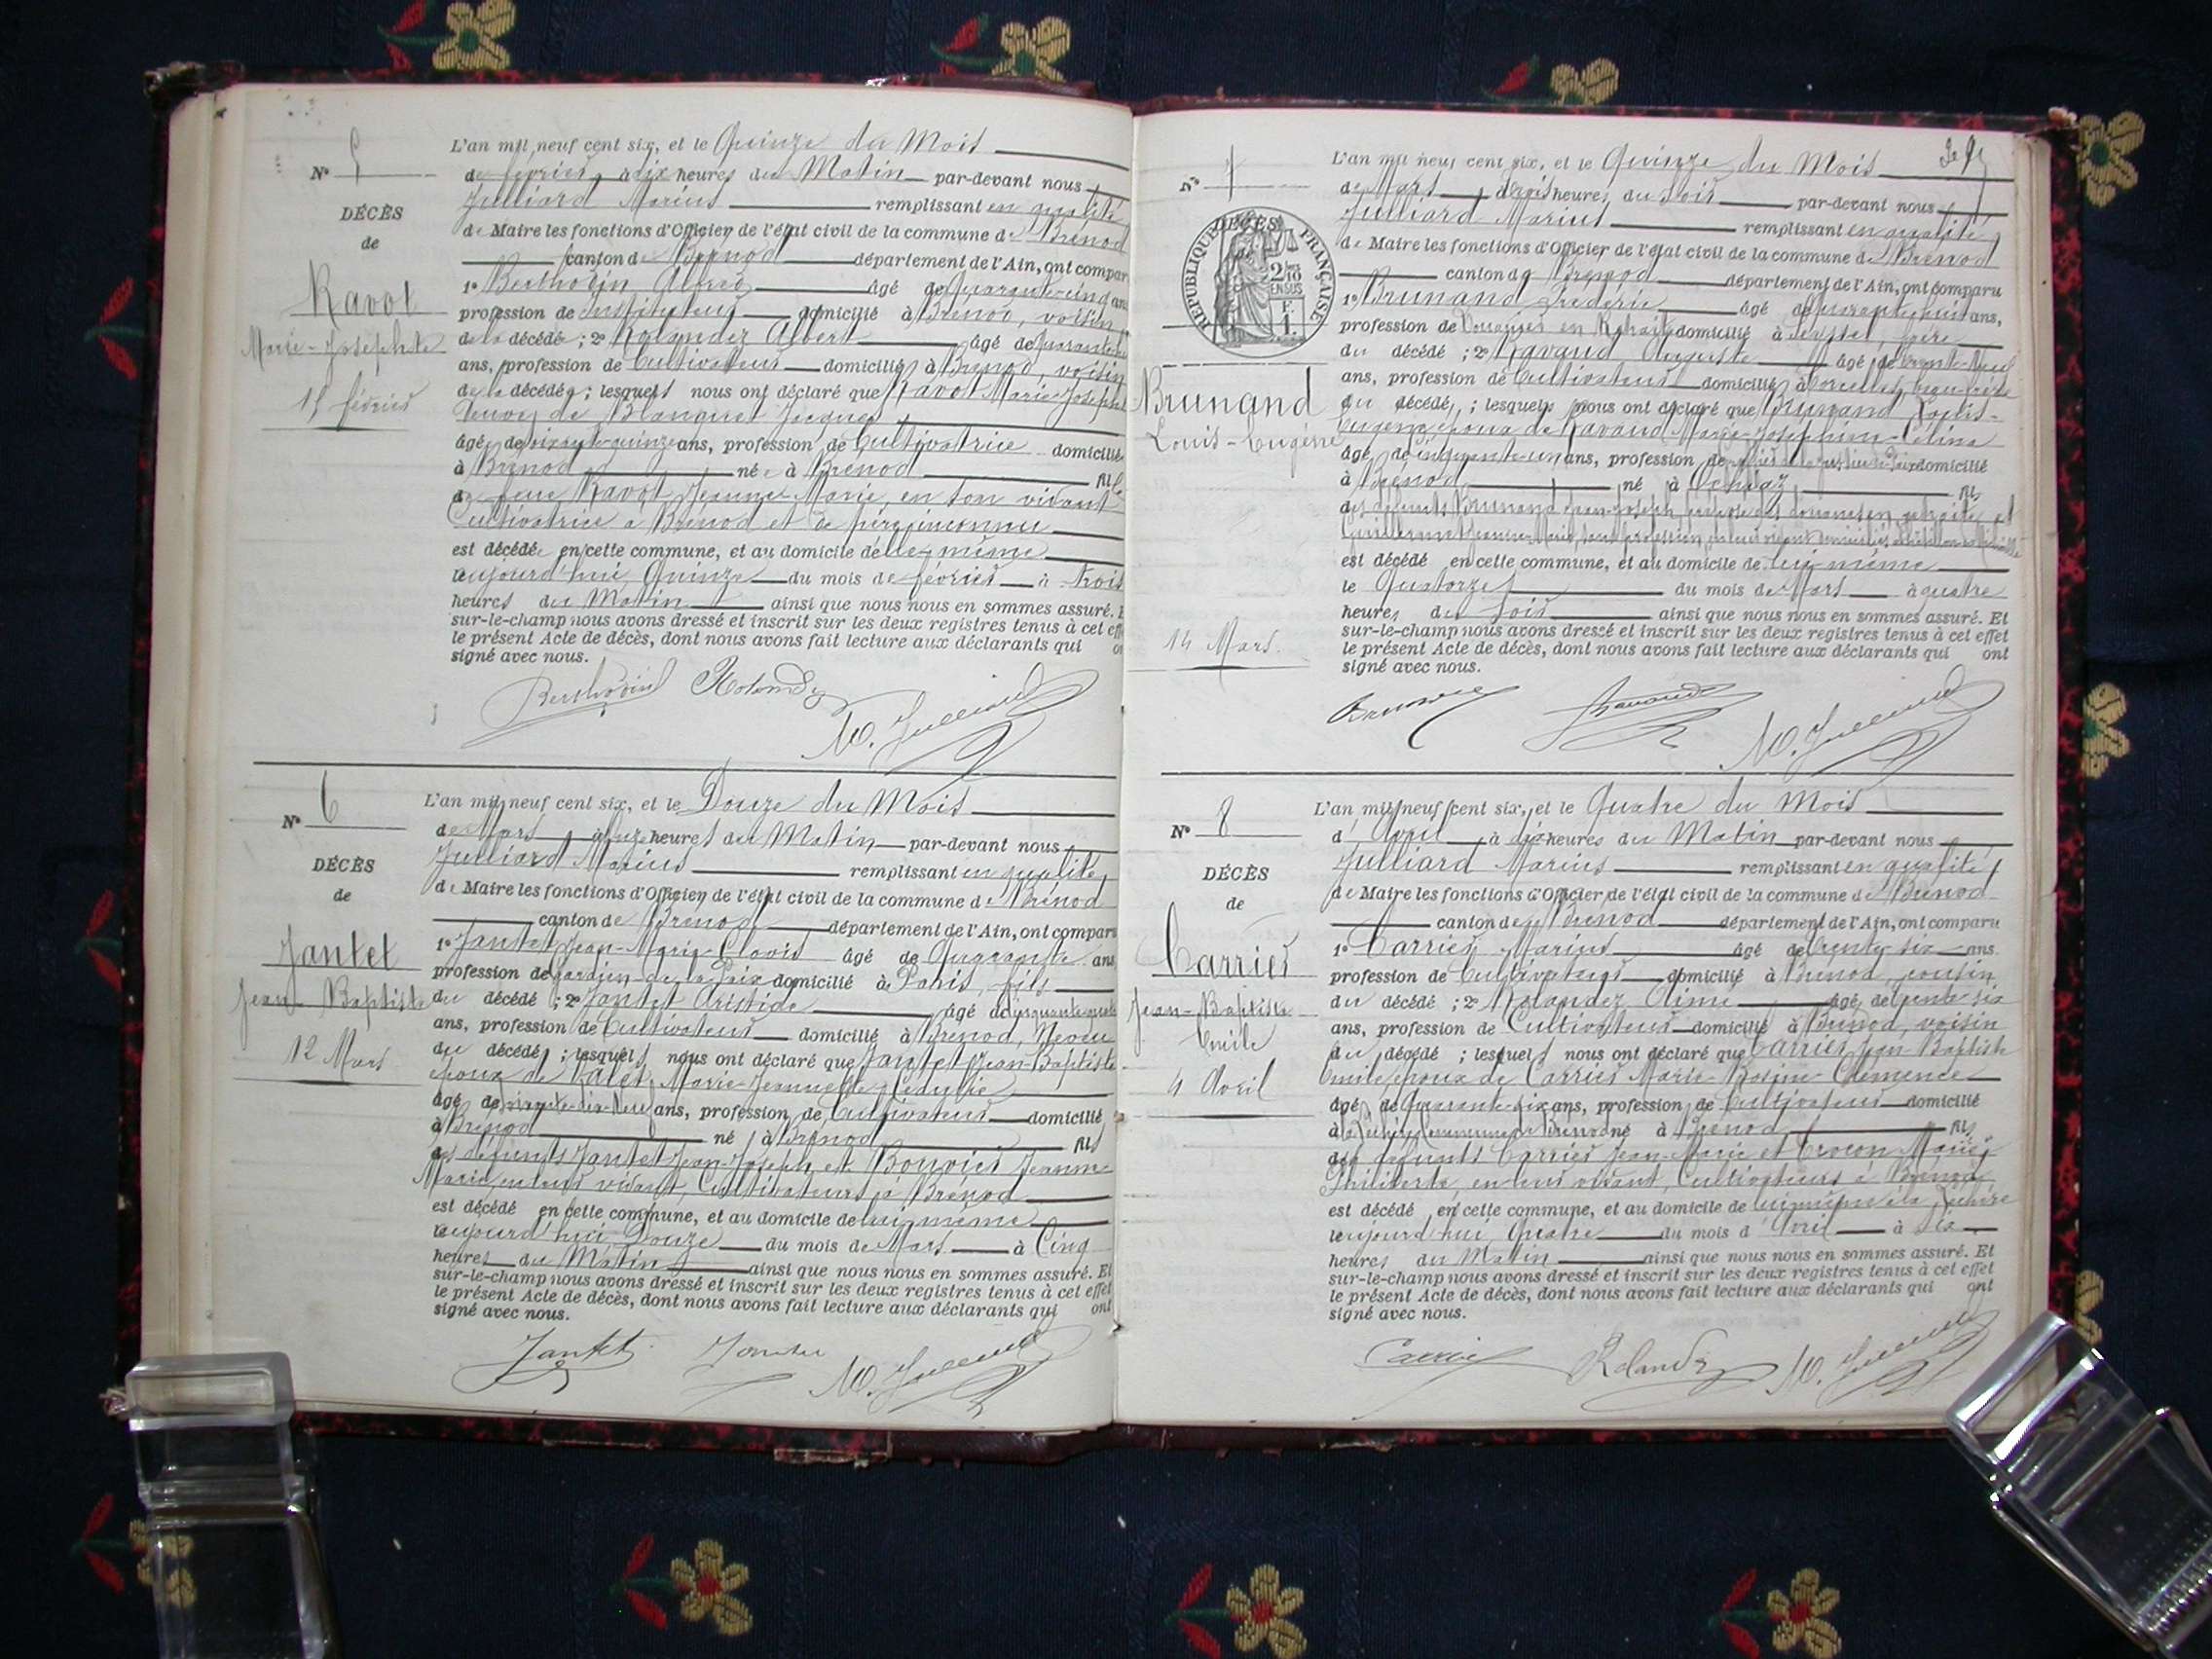 N° 5
DÉCÈS
de
Ravot
Marie-Josephte
15 février
L'an mil neuf cent six, et le Quinze du Mois
de février à dix heures du Matin par-devant nous
Julliard Marius remplissant en qualité
de Maire les fonctions d'Officier de l'état civil de la commune de Brénod
canton de Brénod département de l'Ain, ont comparu
1° Berthodin Alfred âgé de quarante-cinq ans
profession de Instituteur domicilié à Brénod, voisin
de la décédé; 2° Rolandez Albert âgé de quarante
ans, profession de Cultivateur domicilié à Brénod, voisin
de la décédée; lesquels nous ont déclaré que Ravot Marie-Josephte
Veuve de Blanguet Jacques
âgée de soixante-quinze ans, profession de Cultivatrice domicilié
à Brénod née à Brénod fille
de feue Ravot Jeanne-Marie, en son vivant
Cultivatrice à Brénod et de père inconnu
est décédée en cette commune, et au domicile d'elle-même
aujourd'hui Quinze du mois de février à trois
heures du Matin ainsi que nous nous en sommes assuré. Et
sur-le-champ nous avons dressé et inscrit sur les deux registres tenus à cet effet
le présent Acte de décès, dont nous avons fait lecture aux déclarants qui ont
signé avec nous.
Berthodin Rolandez
M. Julliard
N° 6
DÉCÈS
de
Jantet
Jean-Baptiste
12 Mars
L'an mil neuf cent six, et le Douze du Mois
de Mars à onze heures du Matin par-devant nous
Julliard Marius remplissant en qualité
de Maire les fonctions d'Officier de l'état civil de la commune de Brénod
canton de Brénod département de l'Ain, ont comparu
1° Jantet Jean-Marie-Clovis âgé de Quarante ans
profession de Gardien de la Paix domicilié à Paris, fils
du décédé; 2° Jantet Aristide âgé de cinquante-quatre
ans, profession de Cultivateur domicilié à Brénod, Neveu
du décédé; lesquels nous ont déclaré que Jantet Jean-Baptiste
époux de Marie-Jeannette
âgé de soixante-dix-neuf ans, profession de Cultivateur domicilié
à Brénod né à Brénod fils
des défunts Jantet Jean-Joseph et Bouvier Jeanne-
Marie, en leur vivant, Cultivateurs à Brénod
est décédé en cette commune, et au domicile de lui-même
aujourd'hui Douze du mois de Mars à Cinq
heures du Matin ainsi que nous nous en sommes assuré. Et
sur-le-champ nous avons dressé et inscrit sur les deux registres tenus à cet effet
le présent Acte de décès, dont nous avons fait lecture aux déclarants qui ont
signé avec nous.
Jantet Jantet M. Julliard
N° 7
DÉCÈS
RÉPUBLIQUE FRANÇAISE
2/10 EN SUS
F. 1.
Brunand
Louis-Eugène
14 Mars
L'an mil neuf cent six, et le Quinze du Mois
de Mars à trois heures du Soir par-devant nous
Julliard Marius remplissant en qualité
de Maire les fonctions d'Officier de l'état civil de la commune de Brénod
canton de Brénod département de l'Ain, ont comparu
1° Brunand Frédéric âgé de quarante-huit ans,
profession de Douanier en Retraite domicilié à Seyssel, frère
du décédé; 2° Ravaud Auguste âgé de trente-neuf
ans, profession de Cultivateur domicilié à Corcelles, beau-frère
du décédé; lesquels nous ont déclaré que Brunand Louis-
Eugène époux de Ravaud Marie-Joséphine-Célina
âgé de cinquante-un ans, profession de domicilié
à Brénod né à Ochiaz fils
des défunts Brunand Jean-Joseph, des douanes en retraite et
est décédé en cette commune, et au domicile de lui-même
le Quatorze du mois de Mars à quatre
heures du Soir ainsi que nous nous en sommes assuré. Et
sur-le-champ nous avons dressé et inscrit sur les deux registres tenus à cet effet
le présent Acte de décès, dont nous avons fait lecture aux déclarants qui ont
signé avec nous.
Brunand Ravaud M. Julliard
N° 8
DÉCÈS
de
Carrier
Jean-Baptiste-
Emile
4 Avril
L'an mil neuf cent six, et le Quatre du Mois
d'Avril à dix heures du Matin par-devant nous
Julliard Marius remplissant en qualité
de Maire les fonctions d'Officier de l'état civil de la commune de Brénod
canton de Brénod département de l'Ain, ont comparu
1° Carrier Marius âgé de trente-six ans
profession de Cultivateur domicilié à Brénod, cousin
du décédé; 2° Rolandez Aimé âgé de trente-six
ans, profession de Cultivateur domicilié à Brénod, voisin
du décédé; lesquels nous ont déclaré que Carrier Jean-Baptiste
Emile époux de Carrier Marie-Rosine-Clémence
âgé de Quarante-six ans, profession de Cultivateur domicilié
à commune de Brénod né à Brénod fils
des défunts Carrier Jean-Marie et Marie-
Philiberte, en leur vivant, Cultivateurs à Brénod
est décédé en cette commune, et au domicile de lui-même à la
aujourd'hui Quatre du mois d'Avril à Six
heures du Matin ainsi que nous nous en sommes assuré. Et
sur-le-champ nous avons dressé et inscrit sur les deux registres tenus à cet effet
le présent Acte de décès, dont nous avons fait lecture aux déclarants qui ont
signé avec nous.
Carrier Rolandez M. Julliard